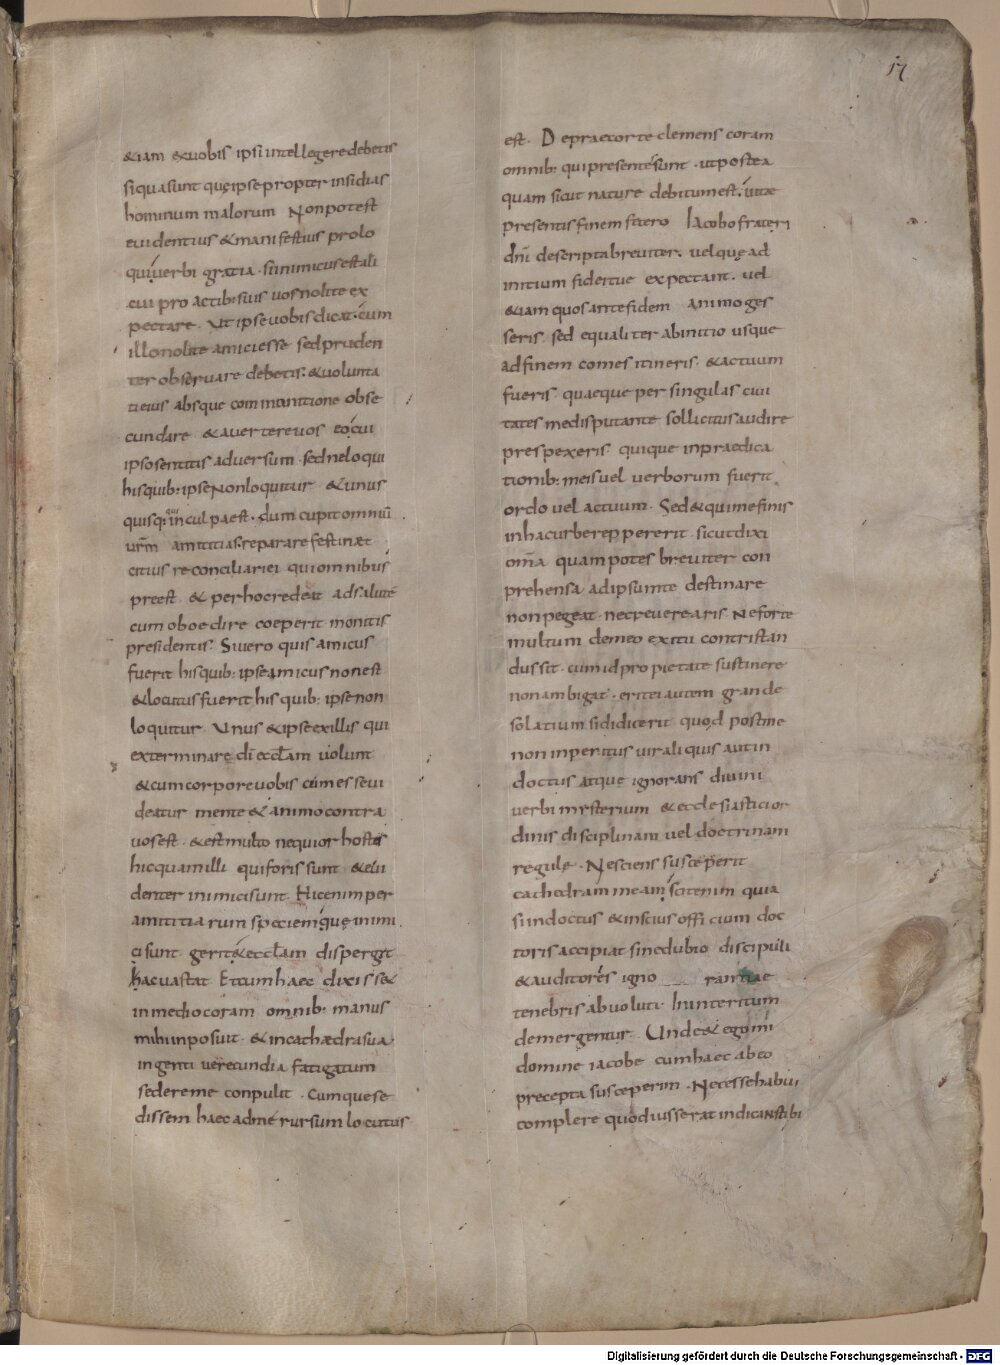 17
&iam &uobis ipsi intellegere debetis
si qua sunt quę ipse propter insidias
hominum malorum Non potest
euidentius & manifestius prolo
qui; uerbi gratia si inimicus est ali
cui pro actib; suis uos nolite ex
pectare. Ut ipse uobis dicat. cum
illo nolite amici esse sed pruden
ter obseruare debetis. & uolunta
ti eius absque commonitione obse
cundare & auertere uos eo cui
ipso sentitis aduersum. sed ne loqui
his quib: ipse Non loquitur & unus
quisq; qui in culpa est. dum cupit omniū
urm̄ amititias reparare festin&
citius reconciliari ei qui omnibus
preest & per hoc redeat ad salutē
cum oboedire coeperit monitis
presidentis. Si uero quis amicus
fuerit his quib: ipse amicus non est
& locutus fuerit his quib: ipse non
loquitur Unus & ipse ex illis qui
exterminare dī eccłam uolunt
& cum corpore uobis cum esse ui
deatur mente & animo contra
uos est. & est multo nequior hostis
hic quam illi qui foris sunt & eui
denter inimici sunt. Hic enim per
amititiarum speciem quę inimi
ci sunt gerit & eccłam disperg&
hac uastat Et cum haec dixiss&
in medio coram omnib: manus
mihi inposuit & in cathædra sua
ingenti uerecundia fatigatum
sedere me conpulit. Cumque se
dissem haec ad me rursum locutus
est. Deprecor te clemens coram
omnib: qui presentes sunt. ut postea
quam sicut nature debitum est. uitæ
presentis finem fecero Iacobo frateri
dn̄i descripta breuiter. uel quę ad
initium fidei tue expectant. uel
& iam quos ante fidem animo ges
seris. sed equaliter ab initio usque
ad finem comes itineris & actuum
fueris quaeque per singulas ciui
tates me disputante sollicitus audire
prespexeris quique in praedica
tionib: meis uel uerborum fuerit
ordo uel actuum. Sed & qui me finis
in hac urbe repp ererit sicut dixi
om̄a quam potes breuiter con
prehensa ad ipsum te destinare
non pegeat. nec reuerearis Ne forte
multum de meo exitu contristan
dus sit. cum id pro pietate sustinere
non ambigat. erit ei autem grande
solatium si didicerit quod post me
non inperitus uir aliquis aut in
doctus atque ignorans diuini
uerbi mysterium & ecclesiastici or
dinis disciplinam uel doctrinam
regulę. Nesciens susceperit
cathedram meam scit enim quia
si indoctus & inscius officium doc
toris accipiat sine dubio discipuli
& auditores igno rantiae
tenebris abuoluti. In interitum
demergentur. Unde & ego mi
domine iacobe cum haec ab eo
precepta susceperim. Necesse habui
complere quod iusserat indicans tibi
Digitalisierung gefördert durch die Deutsche Forschungsgemeinschaft - DFG